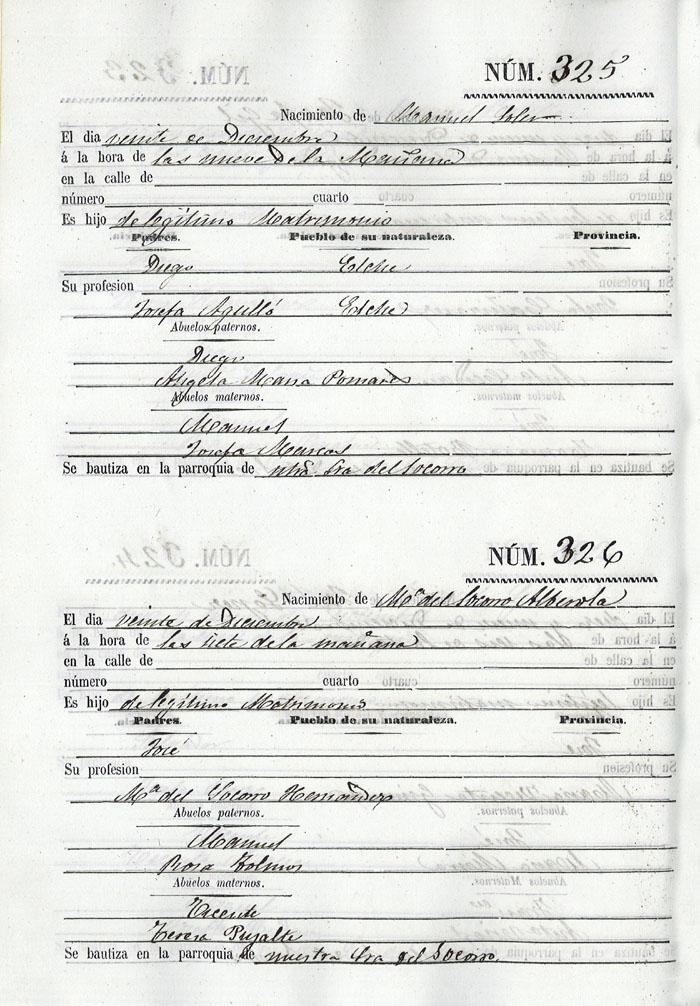 NÚM. 325
Nacimiento de Manuel Soler
El dia veinte de Diciembre
á la hora de las nueve de la Mañana
en la calle de
número cuarto
Es hijo de legítimo Matrimonio
Padres. Pueblo de su naturaleza. Provincia.
Diego Elche
Su profesion
Josefa Agulló Elche
Abuelos paternos.
Diego
Angela Maria Pomares
Abuelos maternos.
Manuel
Josefa Marcos
Se bautiza en la parroquia de ntra Sra del Socorro
NÚM. 326
Nacimiento de Mª del Socorro Alberola
El dia veinte de Diciembre
á la hora de las siete de la mañana
en la calle de
número cuarto
Es hijo de legítimo Matrimonio
Padres. Pueblo de su naturaleza. Provincia.
José
Su profesion
Mª del Socorro Hernandez
Abuelos paternos.
Manuel
Rosa
Abuelos maternos.
Vicente
Teresa Pujalte
Se bautiza en la parroquia de nuestra Sra del Socorro